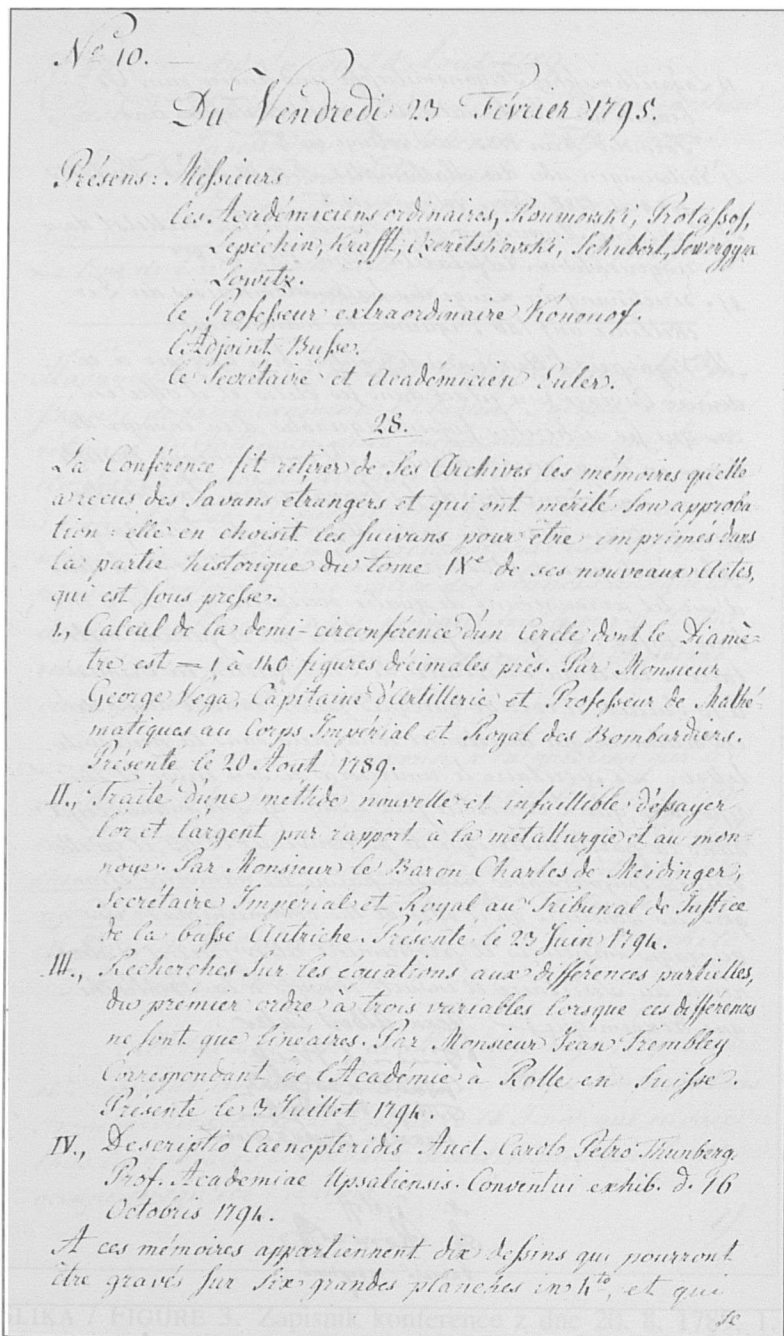 No 10.
Du Vendredi 23 Février 1795.
Présens: Messieurs
les Académiciens ordinaires, Roumovski, Protassof,
Lepechin, Krafft, Ozeretskovski, Schubert, Sewergyn
Lowitz.
le Professeur extraordinaire Kononof.
l'Adjoint Busse.
le Secrétaire et Académicien Euler.
28.
La Conférence fit retirer de ses Archives les mémoires qu'elle
a reçus des Savans étrangers et qui ont mérité son approba
tion: elle en choisit les suivans pour être imprimés dans
la partie historique du tome IXe de ses nouveaux Actes,
qui est sous presse.
I., Calcul de la demi-circonférence d'un Cercle dont le Diamè-
tre est = 1 à 140 figures décimales près. Par Monsieur
George Vega, Capitaine d'Artillerie et Professeur de Mathé-
matiques au Corps Impérial et Royal des Bombardiers.
Présenté le 20 Aout 1789.
II., Traité d'une méthode nouvelle et infaillible d'essayer
l'or et l'argent par rapport à la metallurgie et au mon-
noye. Par Monsieur le Baron Charles de Meidinger,
Secrétaire Impérial et Royal au Tribunal de Justice
de la basse Autriche. Présenté le 23 Juin 1794.
III., Recherches sur les équations aux différences partielles,
du prémier ordre à trois variables lorsque ces différences
ne sont que linéaires. Par Monsieur Jean Trembley
Correspondant de l'Académie à Rolle en Suisse.
Présenté le 3 Juillet 1794.
IV., Descriptio Caenopteridis Auct. Carolo Petro Thunberg.
Prof. Academiae Upsaliensis. Conventui exhib. d. 16
Octobris 1794.
A ces mémoires appartiennent dix dessins qui pourront
être gravés sur six grandes planches in 4to, et qui
se
OLIKA / FIGURE 3. Zapisnik konference z dne 20. 8. 1789. I.